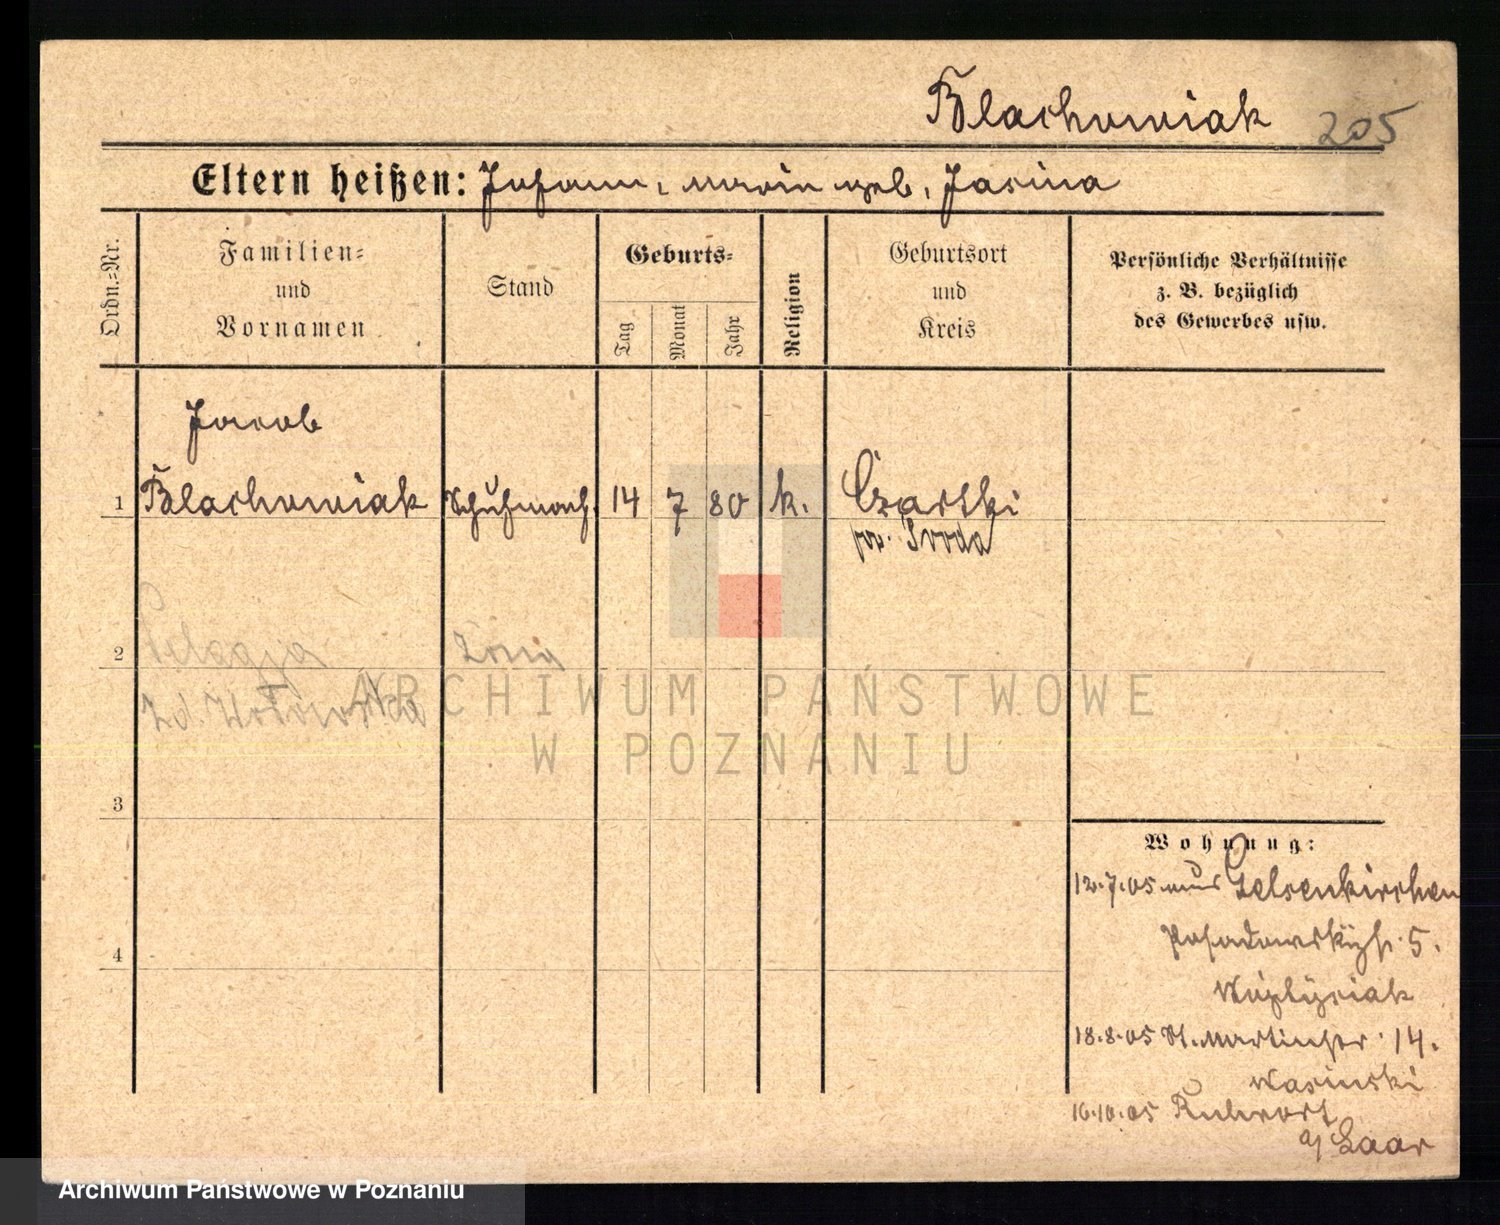 Blachowiak 205
Eltern heißen: Johann, Marie geb. Jasina
Ordn.=Nr.
Familien=
und
Vornamen
Stand
Geburts=
Tag
Monat
Jahr
Religion
Geburtsort
und
Kreis
Persönliche Verhältnisse
z. B. bezüglich
des Gewerbes usw.
Jacob
1 Blachowiak Schuhmach. 14 7 80 k. Czartki
pow. Środa
2 Pelagja żona
3
4
ARCHIWUM PAŃSTWOWE
W POZNANIU
Wohnung:
12.7.05 aus Gelsenkirchen
Posadowskystr. 5.
18.8.05 St. Martinstr. 14.
Kasinski
16.10.05 Ruhrort
a/ Laar
Archiwum Państwowe w Poznaniu